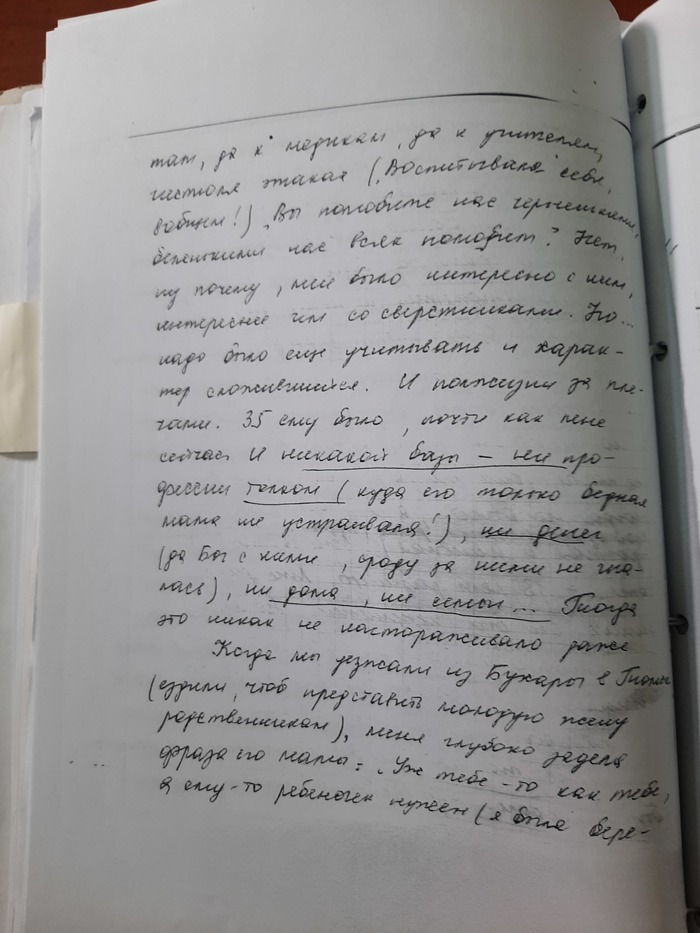 там, да к медикам, да к учителям,
этакая ("Воспитывала" себя,
!) "Вы полюбите нас черненькими,
беленькими нас всяк полюбит". Нет,
ну почему, мне было интересно с ним,
интереснее чем со сверстниками. Но...
надо было еще учитывать и харак-
тер сложившийся. И полжизни за пле-
чами. 35 ему было, почти как мне
сейчас И никакой базы – ни про-
фессии толком (куда его только бедная
мама не устраивала!), ни денег
(да Бог с ними, сроду за ними не гна-
лась), ни дома, ни семьи... Тогда
это никак не настораживало даже
Когда мы уезжали из Бухары в
(ездили, чтоб представить молодую жену
родственникам), меня глубоко задела
фраза его мамы: "Уж тебе-то как тебе,
а ему-то ребеночек нужен (я была бере-